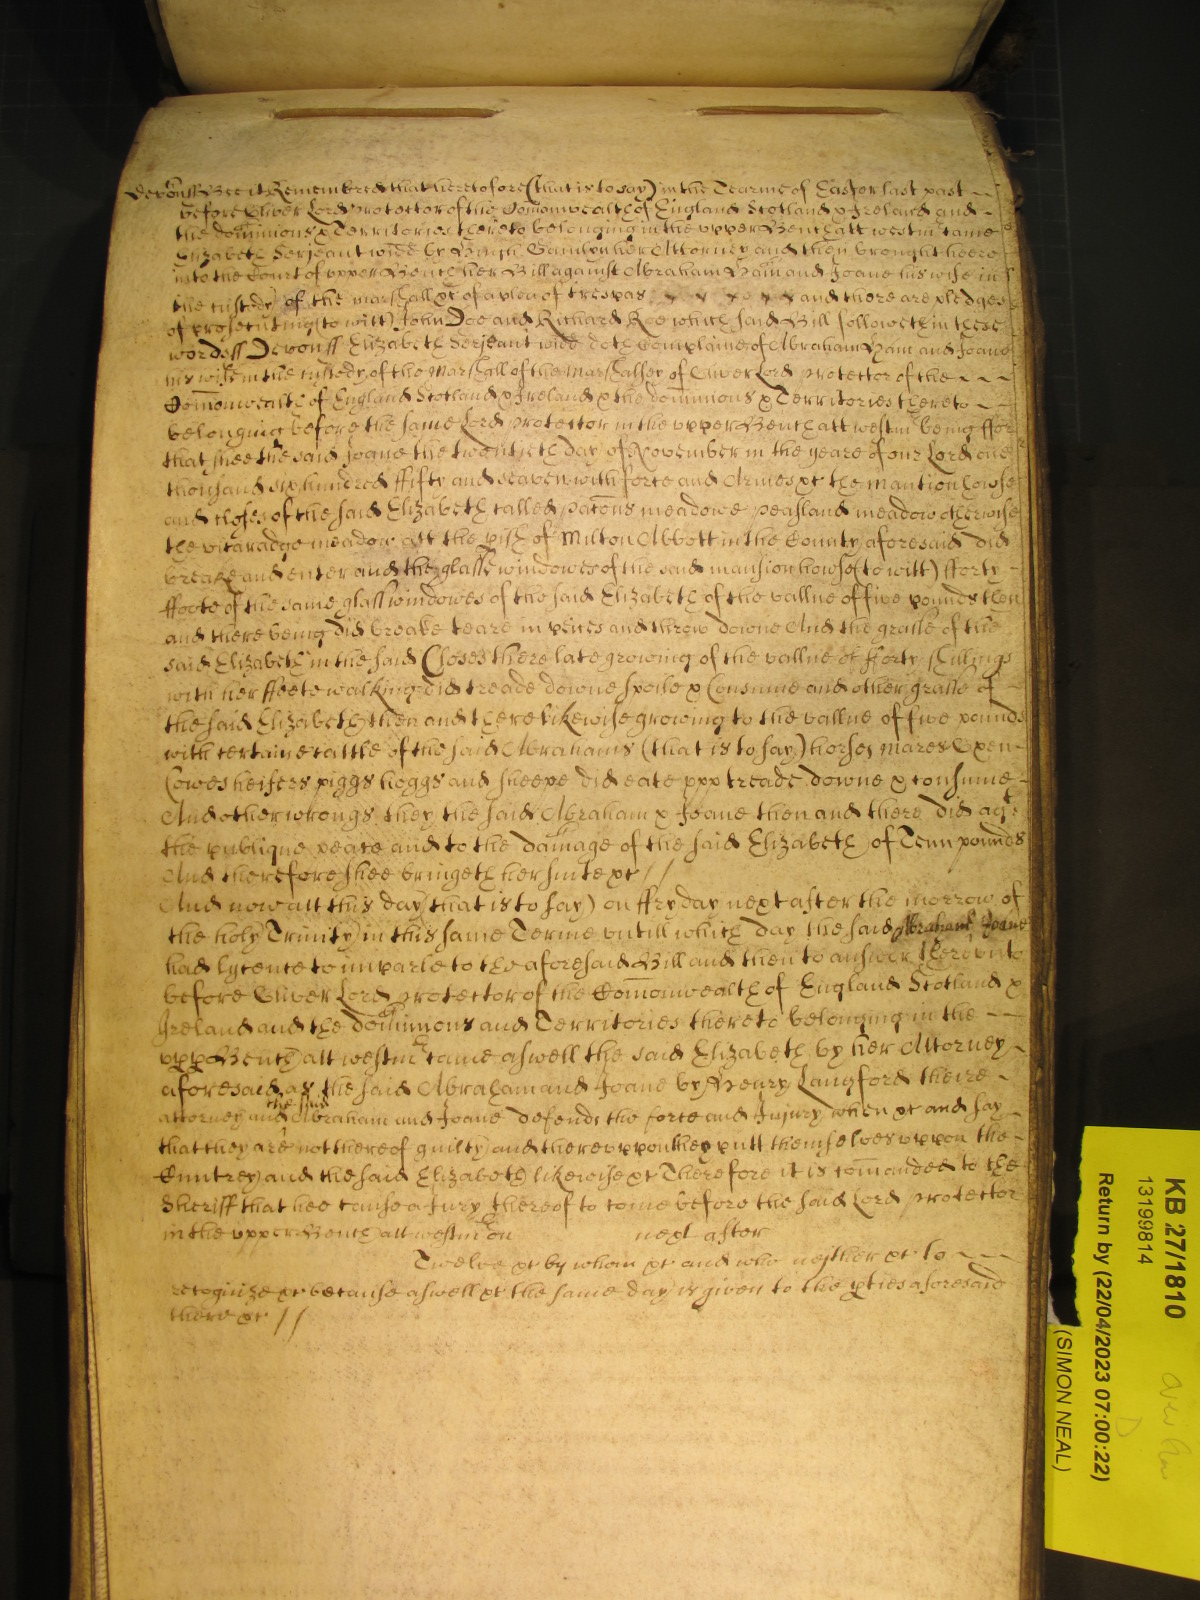 Devonss Bee it Remembred that heretofore (that is to say) in the Tearme of Easter last past
before Oliver Lord Protector of the Comonwealth of England Scotland & Ireland and
the dominions & Territories thereto belonging in the upper Bench att westm came
Elizabeth Serjeant widd by Hugh Gamlyn her Attorney and then brought heere
into the Court of upper Bench her Bill against Abraham Ham and Joane his wife in
the custody of the marshall &c of a plea of trespas and there are pledges
of prosecuting (to witt) John Doe and Richard Roe which said Bill followeth in these
wordes Devonss Elizabeth Serjeant widd doth Complaine of Abraham Ham and Joane
his wife in the custody of the Marshall of the Marshalsey of Oliver Lord Protector of the
Comonwealth of England Scotland & Ireland & the dominions & Territories thereto
belonging before the same Lord Protector in the upper Bench att westm being ffor
that shee the said Joane the twentieth day of November in the yeare of our Lord one
thousand six hundred ffifty and seaven with force and Armes &c the mantion howse
and closes of the said Elizabeth called patons meadowe peasland meadow otherwise
the vicaradge meadow att the pish of Milton Abbott in the County aforesaid did
breake and enter and the glasse windowes of the said mansion howse (to witt) fforty
ffoote of the same glasse windowes of the said Elizabeth of the vallue of five pounds then
and there being did breake teare in peices and throw downe And the grasse of the
said Elizabeth in the said Closes there late growing of the vallue of fforty shillings
with her ffeete walking did treade downe spoile & Consume and other grasse of
the said Elizabeth then and there likewise growing to the vallue of five pounds
with certaine cattle of the said Abrahams (that is to say) horses mares Oxen
Cowes heifers piggs hoggs and sheepe did eate upp treade downe & consume
And other wrongs they the said Abraham & Joane then and there did agt
the publique peace and to the damage of the said Elizabeth of Tenn pounds
And therefore shee bringeth her suite &c //
And now att this day (that is to say) on ffryday next after the morrow of
the holy Trinity in this same Terme untill which day the said Abraham & Joane
had lycence to imparle to the aforesaid Bill and then to answer thereunto
before Oliver Lord Protector of the Comonwealth of England Scotland &
Ireland and the dominions and Territories thereto belonging in the
upp Bench att westm came aswell the said Elizabeth by her Attorney
aforesaid as the said Abraham and Joane by Henry Langford theire
attorney and the said Abraham and Joane defends the force and Injury when &c and say
that they are not thereof guilty and thereuppon they putt themselves uppon the
Cuntrey and the said Elizabeth likewise &c Therefore it is comanded to the
Sheriff that hee cause a Jury thereof to come before the said Lord Protector
in the upper Bench att westm on next after
Twelve &c by whom &c and who neither &c to
recognize &c because aswell &c the same day is given to the pties aforesaid
there &c //
KB 27/1810
13199814
Return by (22/04/2023 07:00:22)
(SIMON NEAL)